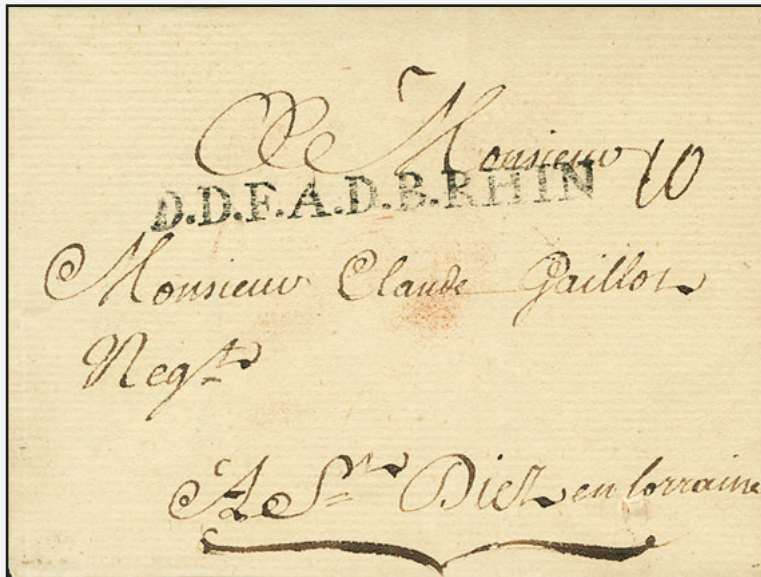 A Monsieur 10
D.D.F.A.D.B.RHIN
Monsieur Claude Gaillot
Negt
A St Diez en lorraine